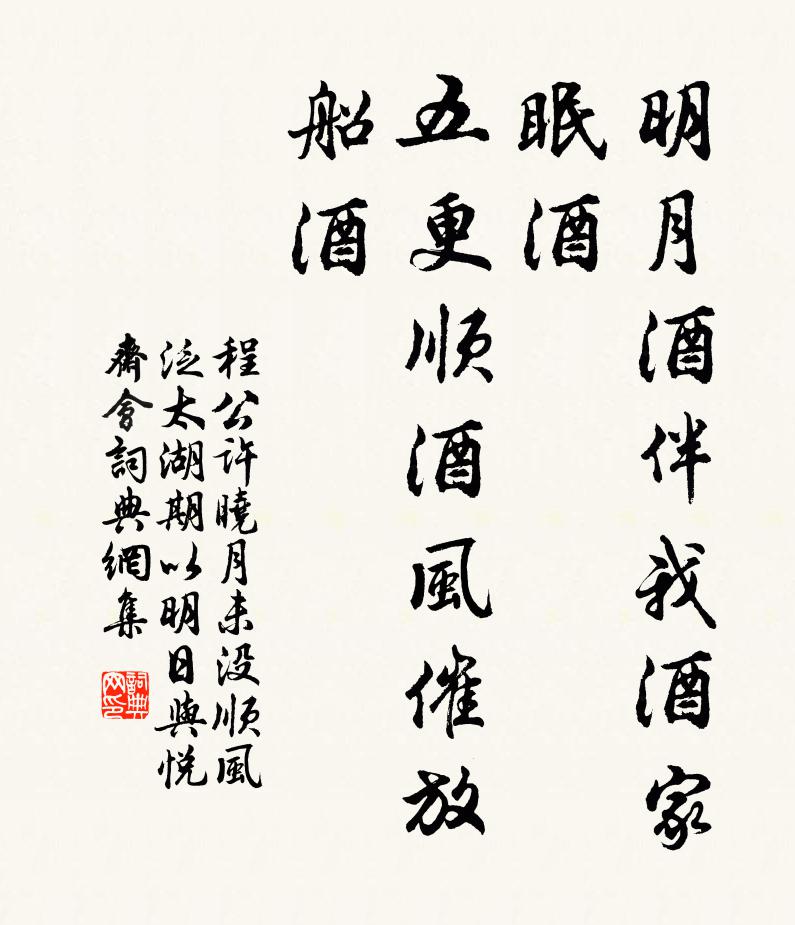 明月酒伴我酒家
眠酒
五更順酒風催放
船酒
程公許曉月未没順風
泛太湖期以明日與悦
齋會詞典網集
詞典网印